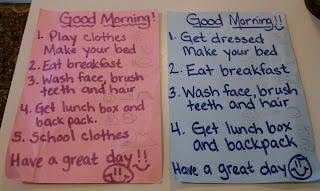 Good Morning!
1. Play clothes
Make your bed
2. Eat breakfast
3. Wash face, brush
teeth and hair
4. Get lunch box and
back pack.
5. School clothes
Have a great day!!
Good Morning!!
1. Get dressed
Make your bed
2. Eat breakfast
3. Wash face, brush
teeth and hair
4. Get lunch box
and backpack
Have a great day!